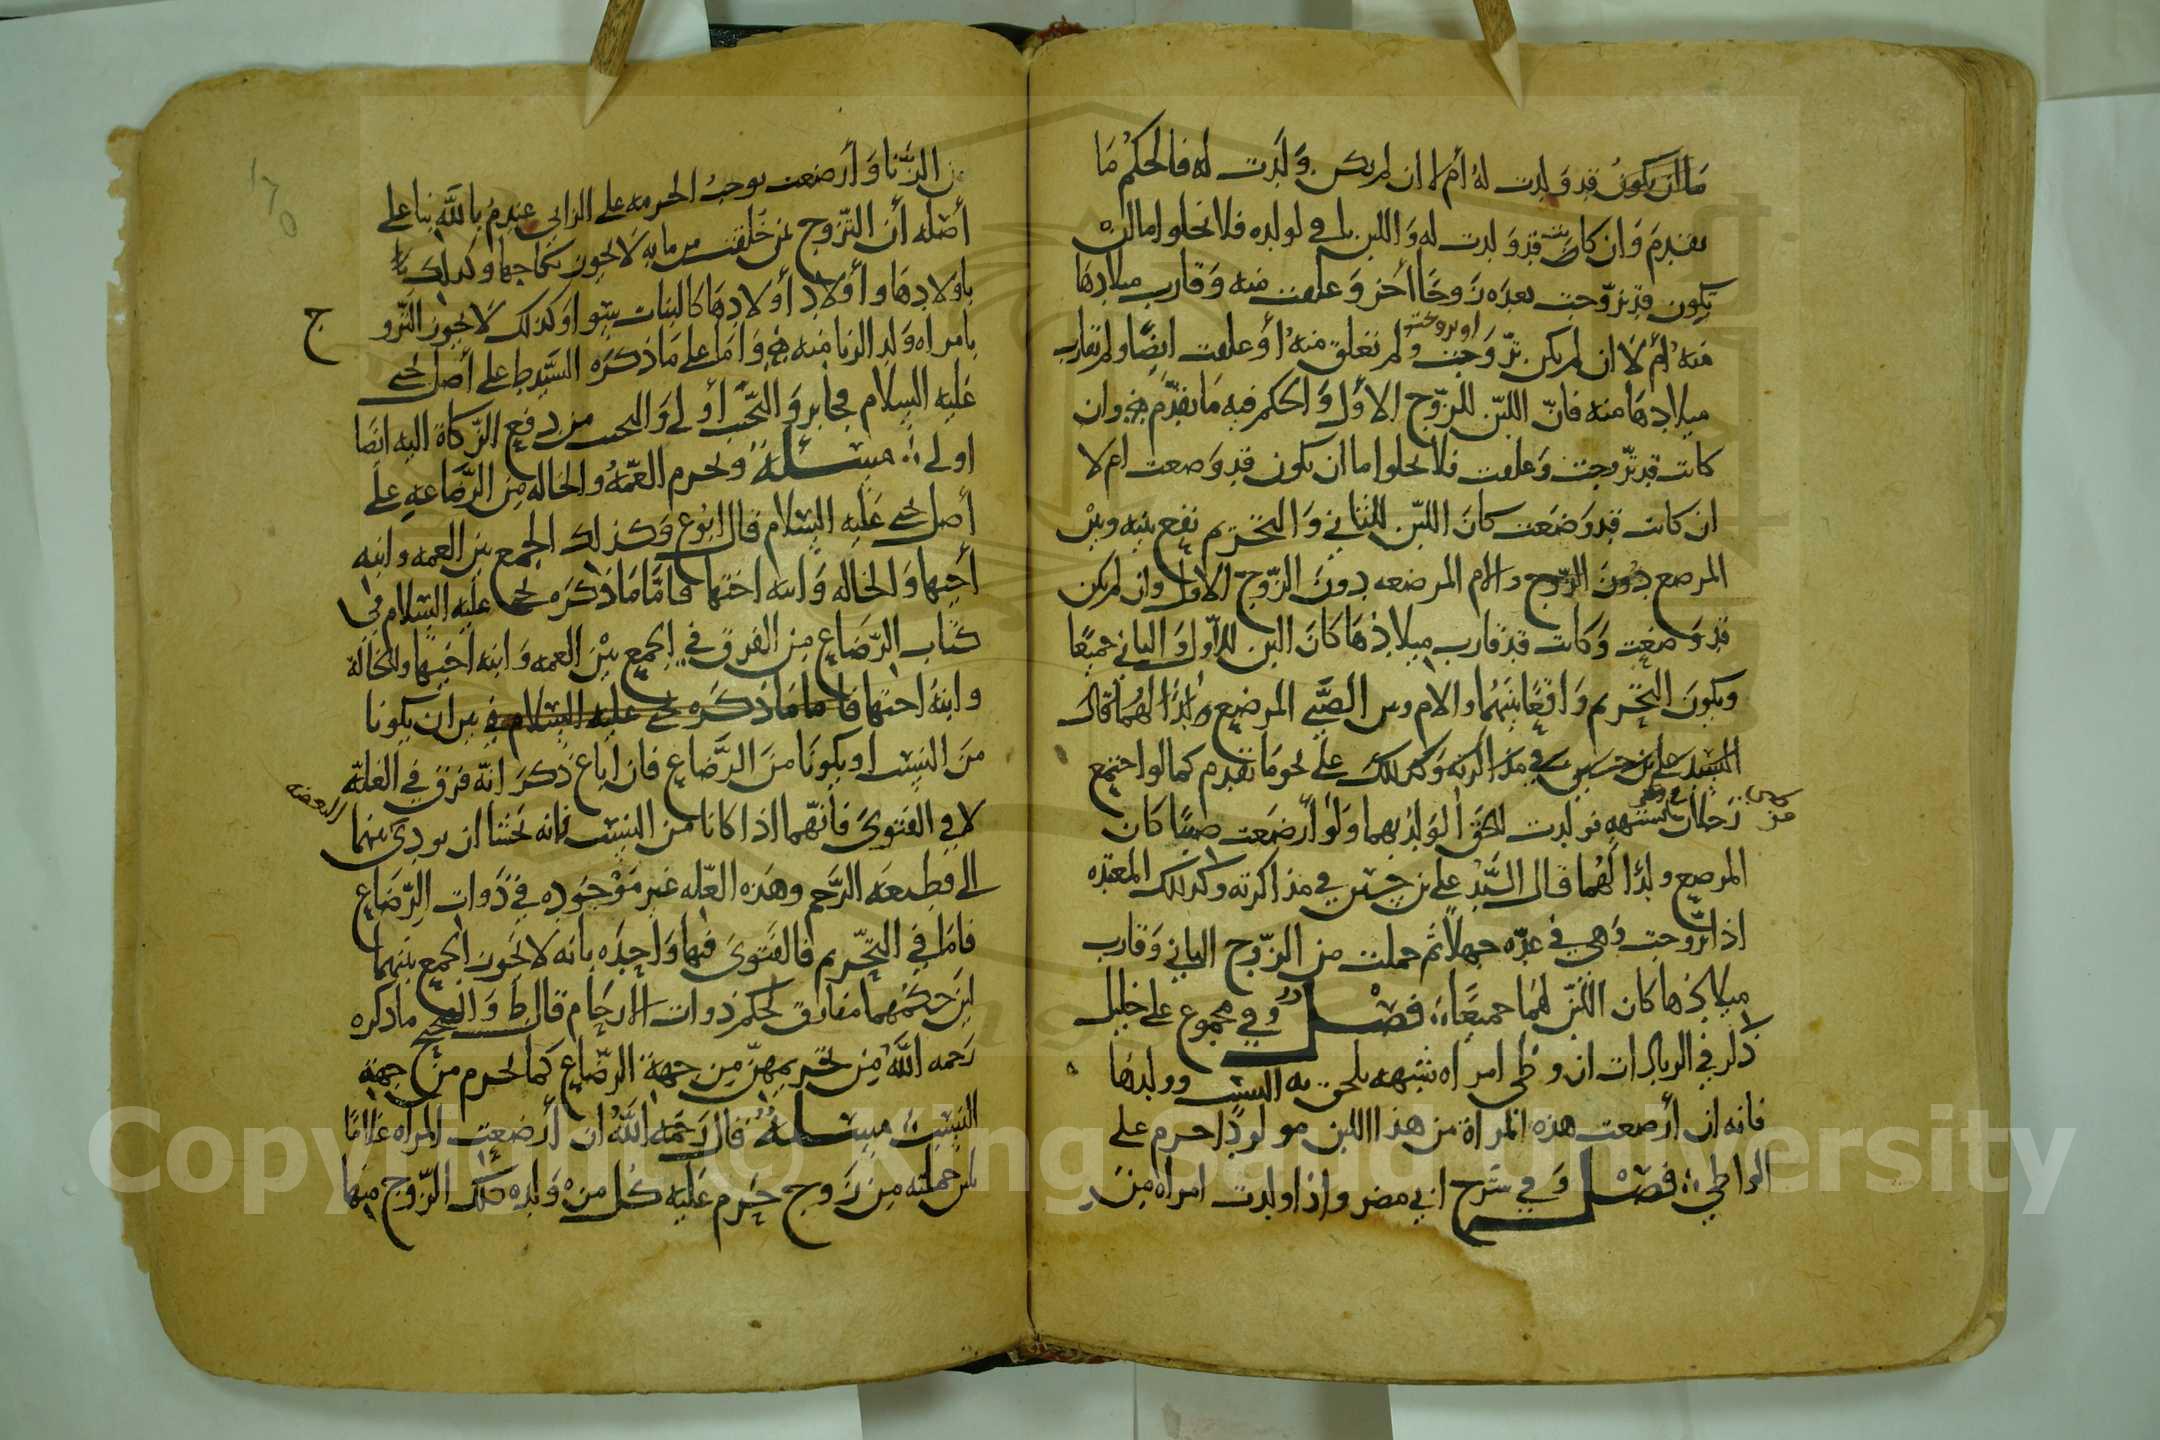 ما ان يكون قد ولدت له أم لا ان لم يكن ولدت له فالحكم ما
تقدم وان كانت قد ولدت له واللبن باقي لولده فلا يخلوا اما ان
يكون قد تزوجت بعده زوجا أخر وعلقت منه وقارب ميلادها
منه أم لا ان لم يكن تزوجت او تزوجت ولم تعلق منه أو علقت ايضا ولم تقارب
ميلادها منه فان اللبن للزوج الأول والحكم فيه ما تقدم وان
كانت قد تزوجت وعلقت فلا يخلوا اما ان يكون قد وضعت ام لا
ان كانت قد وضعت كان اللبن للثاني والتحريم يقع بينه وبين
المرضع دون الزوج والام المرضعه دون الزوج الأول وان لم يكن
قد وضعت وكانت قد قارب ميلادها كان اللبن للأول والثاني جميعا
ويكون التحريم واقعا بينهما والام وبين الصبي المرضع ولدا لهما قال
السيد علي بن حسين في مذاكرته وكذلك على نحو ما تقدم كما لو اجتمع
رجلان في وطئ بالشبهه فولدت لحق الولد بهما ولو أرضعت صبيا كان
المرضع ولدا لهما قال السيد علي بن حسين في مذاكرته وكذلك المعتده
اذا تزوجت وهي في عده جهلا ثم حملت من الزوج الثاني وقارب
ميلادها كان اللبن لهما جميعا فصل وفي مجموع علي خليل
ذكر في الزيادات ان وطي امراه بشبهه يلحق به النسب وولدها
فانه ان أرضعت هذه المراة من هذا اللبن مولودا حرم على
الواطي فصل وفي شرح ابي مضر واذا ولدت امراه من
من الزنا وأرضعت يوجب الحرمه على الزاني عندم بالله بنا على
أصله أن التزوج بمن خلقت من مايه لا يجوز نكاحها وكذلك
باولادها وأولاد أولادها كالبنات سوا وكذلك لا يجوز التزوج
بامراه ولد الزنا منه واما على ما ذكره السيد ط على أصل يحيى
عليه السلام فجايز والتجنب أولى والتجنب من دفع الزكاة اليه ايضا
اولى مسئلة ويحرم العمه والخاله من الرضاعه على
أصل يحيى عليه السلام قال ابوع وكذلك الجمع بين العمه وابنه
أخيها والخاله وابنه اختها فاما ما ذكره يحيى عليه السلام في
كتاب الرضاع من الفرق في الجمع بين العمه وابنه اخيها والخالة
وابنه اختها فاما ما ذكره يحيى عليه السلام في بين ان يكونا
من النسب او يكونا من الرضاع فان اباع ذكر انه فرق في العلة
لا في الفتوى فانهما اذا كانا من النسب فانه يخشا ان يودي بينهما
الى قطيعه الرحم وهذه العله غير موجوده في ذوات الرضاع
فاما في التحريم فالفتوى فيها واحده بانه لا يجوز الجمع بينهما
لان حكمهما مفارق لحكم ذوات الارحام قال ط والصحيح ما ذكره
رحمه الله من تحريمهن من جهة الرضاع كما تحرم من جهة
النسب مسئلة قال رحمه الله ان أرضعت المراه غلاما
بلبن حملته من زوج حرم عليه كل من ولده ذلك الزوج منها